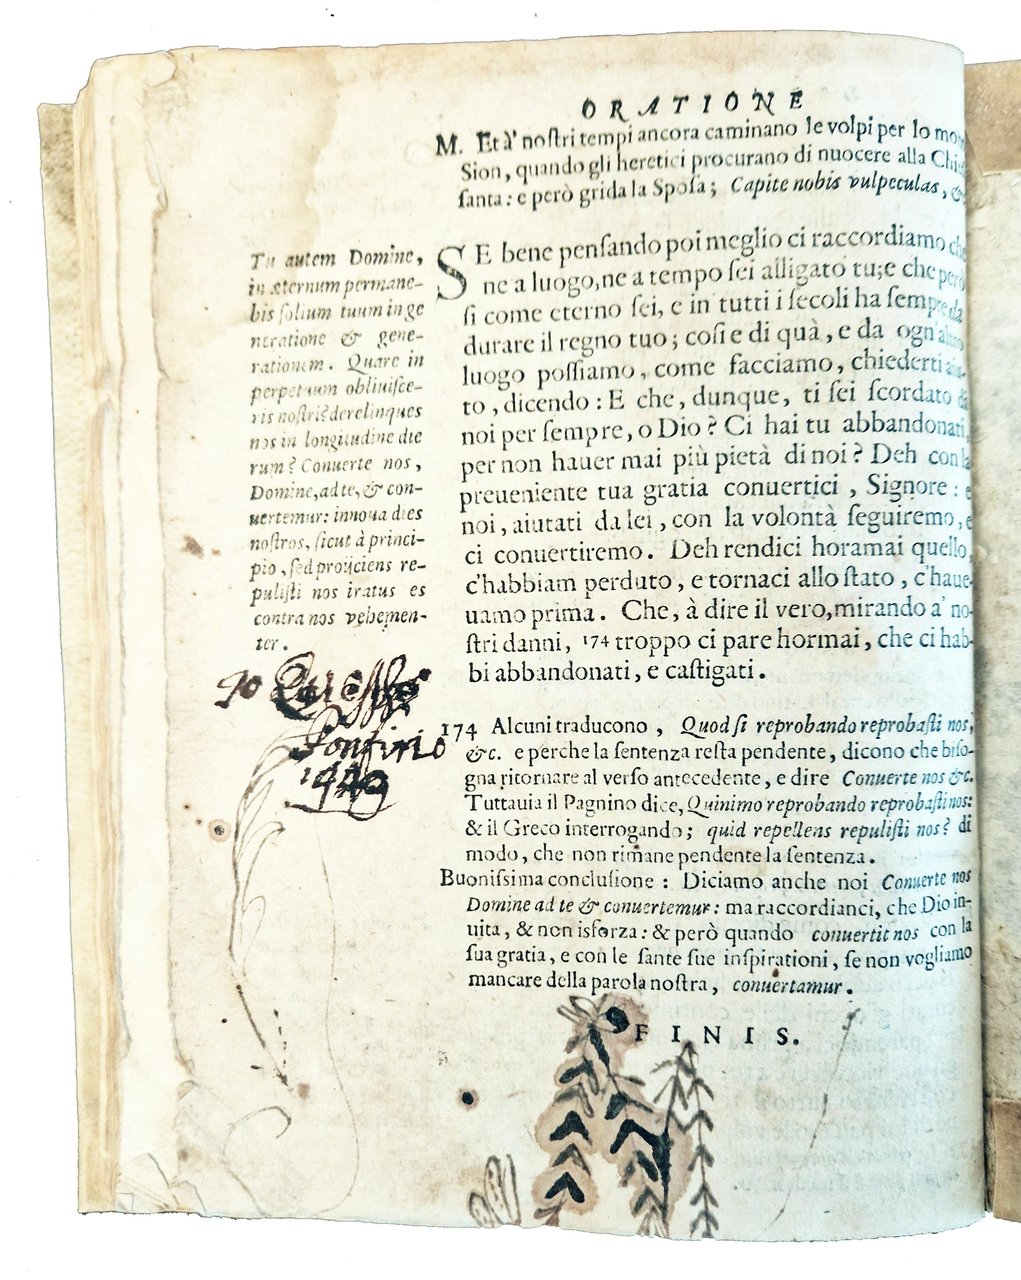 ORATIONE
M. Et à nostri tempi ancora caminano le volpi per lo
Sion, quando gli heretici procurano di nuocere alla
santa: e però grida la Sposa; Capite nobis vulpeculas, &
SE bene pensando poi meglio ci raccordiamo che
ne a luogo, ne a tempo sei alligato tu; e che però
si come eterno sei, e in tutti i secoli ha sempre da
durare il regno tuo; così e di quà, e da ogn'altro
luogo possiamo, come facciamo, chiederti
to, dicendo: E che, dunque, ti sei scordato di
noi per sempre, o Dio? Ci hai tu abbandonati,
per non hauer mai più pietà di noi? Deh con la
preueniente tua gratia conuertici, Signore: e
noi, aiutati da lei, con la volontà seguiremo, e
ci conuertiremo. Deh rendici horamai quello,
c'habbiam perduto, e tornaci allo stato, c'haue-
uamo prima. Che, à dire il vero, mirando a' no-
stri danni, 174 troppo ci pare hormai, che ci hab-
bi abbandonati, e castigati.
Tu autem Domine,
in æternum permane-
bis solium tuum in ge
neratione & gene-
rationem. Quare in
perpetuum obliuisce-
ris nostri? derelinques
nos in longitudine die
rum? Conuerte nos,
Domine, ad te, & con-
uertemur: innoua dies
nostros, sicut à princi-
pio, sed proijciens re-
pulisti nos iratus es
contra nos vehemen-
ter.
Io
174 Alcuni traducono, Quod si reprobando reprobasti nos,
&c. e perche la sentenza resta pendente, dicono che biso-
gna ritornare al verso antecedente, e dire Conuerte nos &c.
Tuttauia il Pagnino dice, Quinimo reprobando reprobasti nos:
& il Greco interrogando; quid repellens repulisti nos? di
modo, che non rimane pendente la sentenza.
Buonissima conclusione: Diciamo anche noi Conuerte nos
Domine ad te & conuertemur: ma raccordianci, che Dio in-
uita, & non isforza: & però quando conuertit nos con la
sua gratia, e con le sante sue inspirationi, se non vogliamo
mancare della parola nostra, conuertamur.
FINIS.